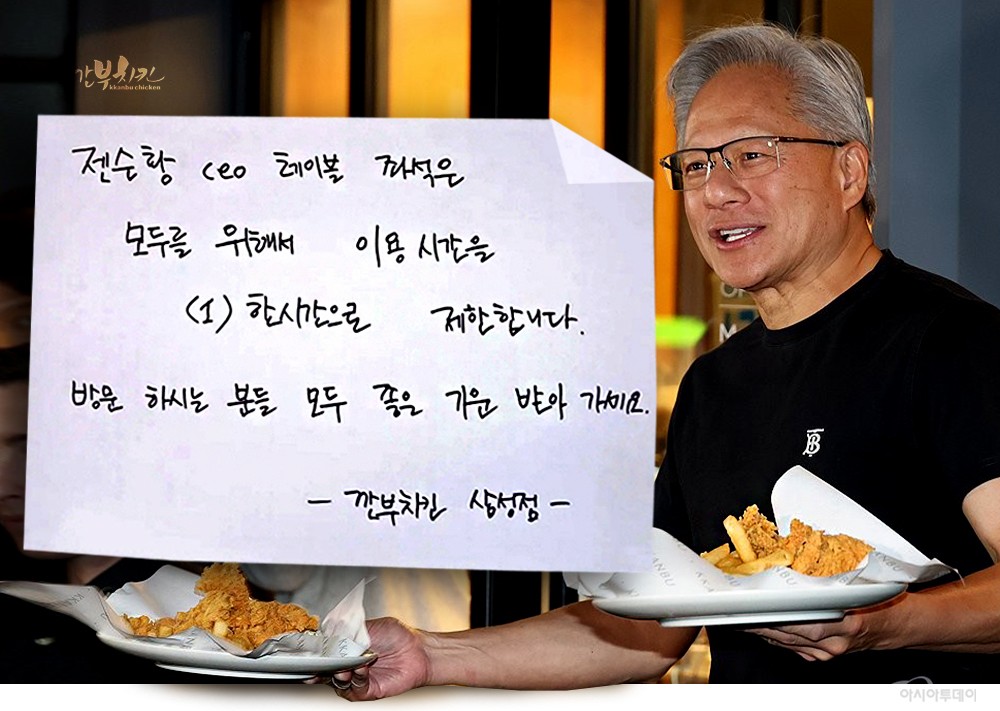 깐부치킨
kkanbu chicken
젠슨황 ceo 테이블 좌석은
모두를 위해서 이용 시간을
(1) 한시간으로 제한합니다.
방문 하시는 분들 모두 좋은 기운 받아 가세요.
- 깐부치킨 삼성점 -
B
KKANBU
KKANBU
아시아투데이